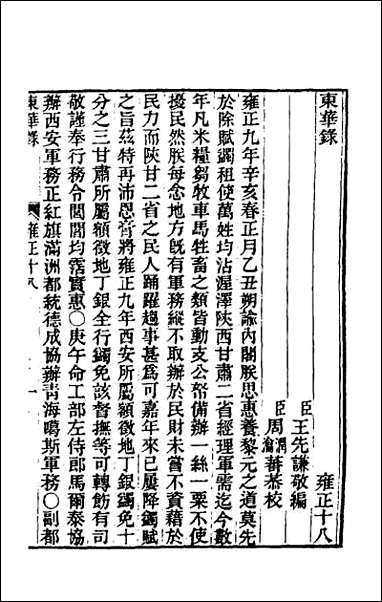 東華錄
雍正十八
臣王先謙敬編
臣周潤蕃周瀹蕃恭校
雍正九年辛亥春正月乙丑朔諭內閣朕思惠養黎元之道莫先
於除賦蠲租使萬姓均沾渥澤陝西甘肅二省經理軍需迄今數
年凡米糧芻牧車馬牲畜之類皆動支公帑備辦一絲一粟不使
擾民然朕每念地方旣有軍務縱不取辦於民財未嘗不資藉於
民力而陝甘二省之民人踊躍趨事甚爲可嘉年來已屢降蠲賦
之旨茲特再沛恩膏將雍正九年西安所屬額徵地丁銀蠲免十
分之三甘肅所屬額徵地丁銀全行蠲免該督撫等可轉飭有司
敬謹奉行務令閭閻均霑實惠〇庚午命工部左侍郎馬爾泰協
辦西安軍務正紅旗滿洲都統德成協辦青海噶斯軍務〇副都
東華錄
雍正十八
一